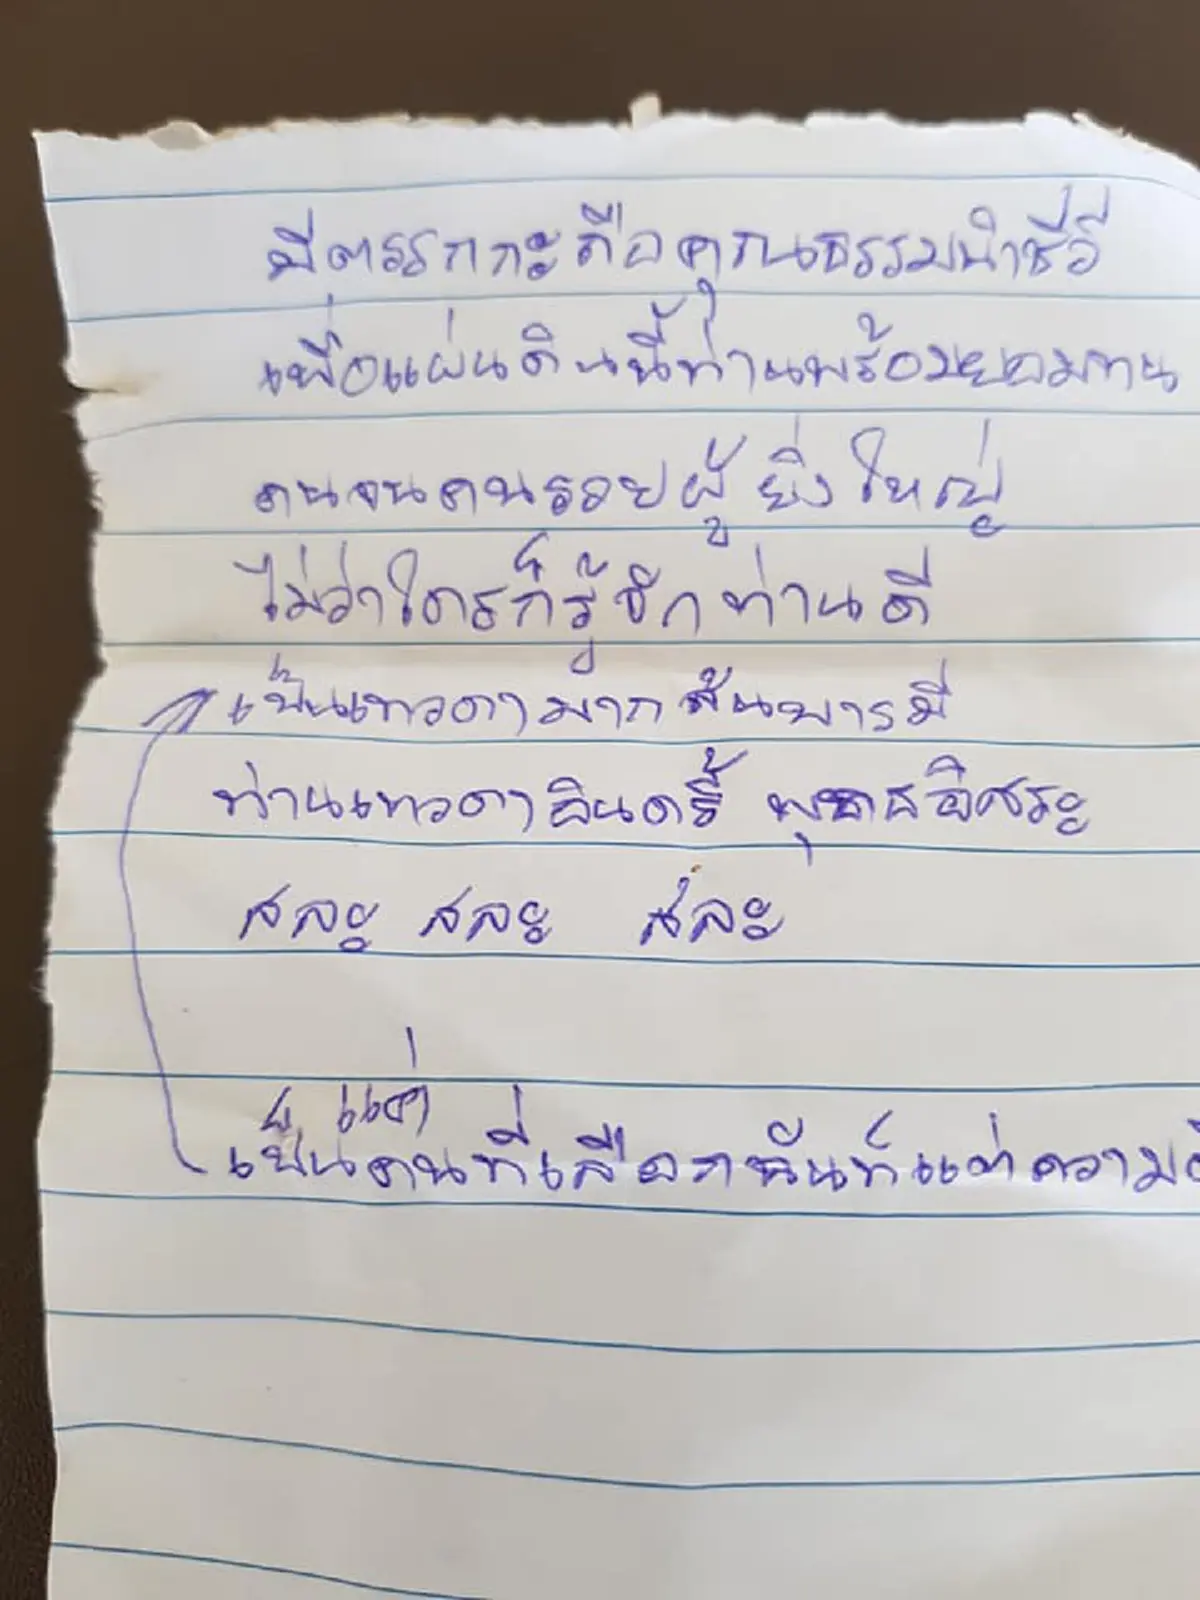 มีตรรกกะคือคุณธรรมนำชีวี
เพื่อแผ่นดินนี้ท่านพร้อมยอมทน
คนจนคนรวยผู้ยิ่งใหญ่
ไม่ว่าใครก็รู้จักท่านดี
เป็นเทวดามากล้นบารมี
ท่านเทวดาอินดรี้ พุทธอิสระ
สละ สละ สละ
แค่
เป็นคนที่เลือกฉันท์แต่ความ